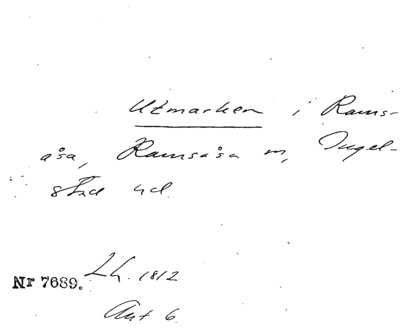 Utmarken i Rams-
åsa, Ramsåsa sn, Ingel-
stad hd.
Nr 7689. Lh. 1812
Ant 6